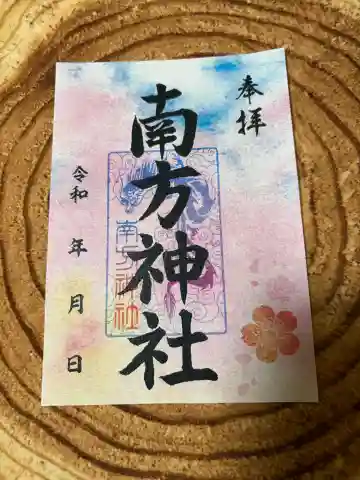 奉拝
南方神社
南方神社
令和　年　月　日